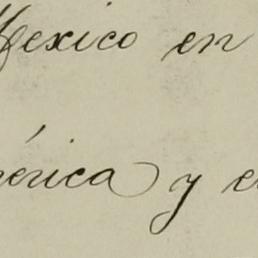 Mexico en
érica y e